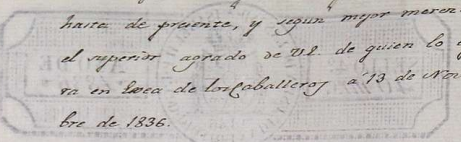 hasta de presente, y segun mejor meren
el superior agrado de Vl. de quien lo
ra en Exea de los Caballeros a 13 de Nov
bre de 1836.